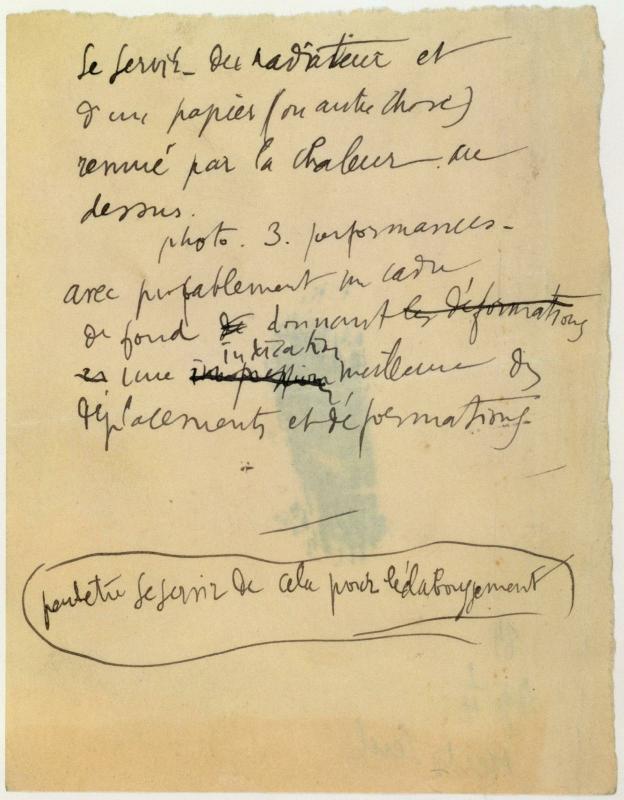 Se servir du radiateur et
d'un papier (ou autre chose)
remué par la chaleur au
dessus.
photo. 3. performances -
avec probablement un cadre
de fond de donnant les déformations
une impression meilleure des
déplacements et déformations.
peutetre se servir de cela pour